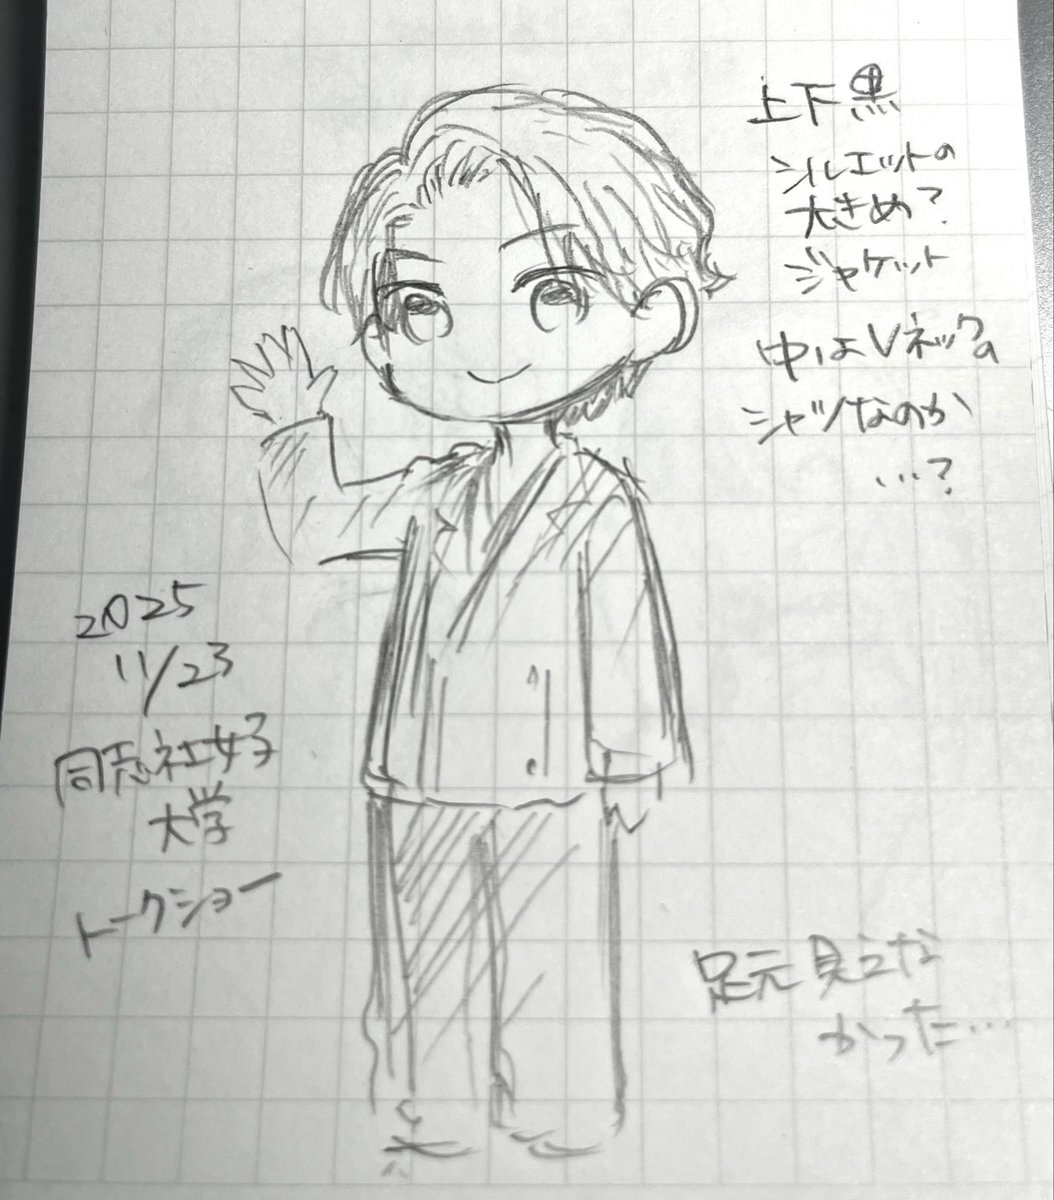 上下黒
シルエットの
大きめ?
ジャケット
中はVネックの
シャツなのか
…?
2025
11/23
同志社女子
大学
トークショー
足元見えな
かった…